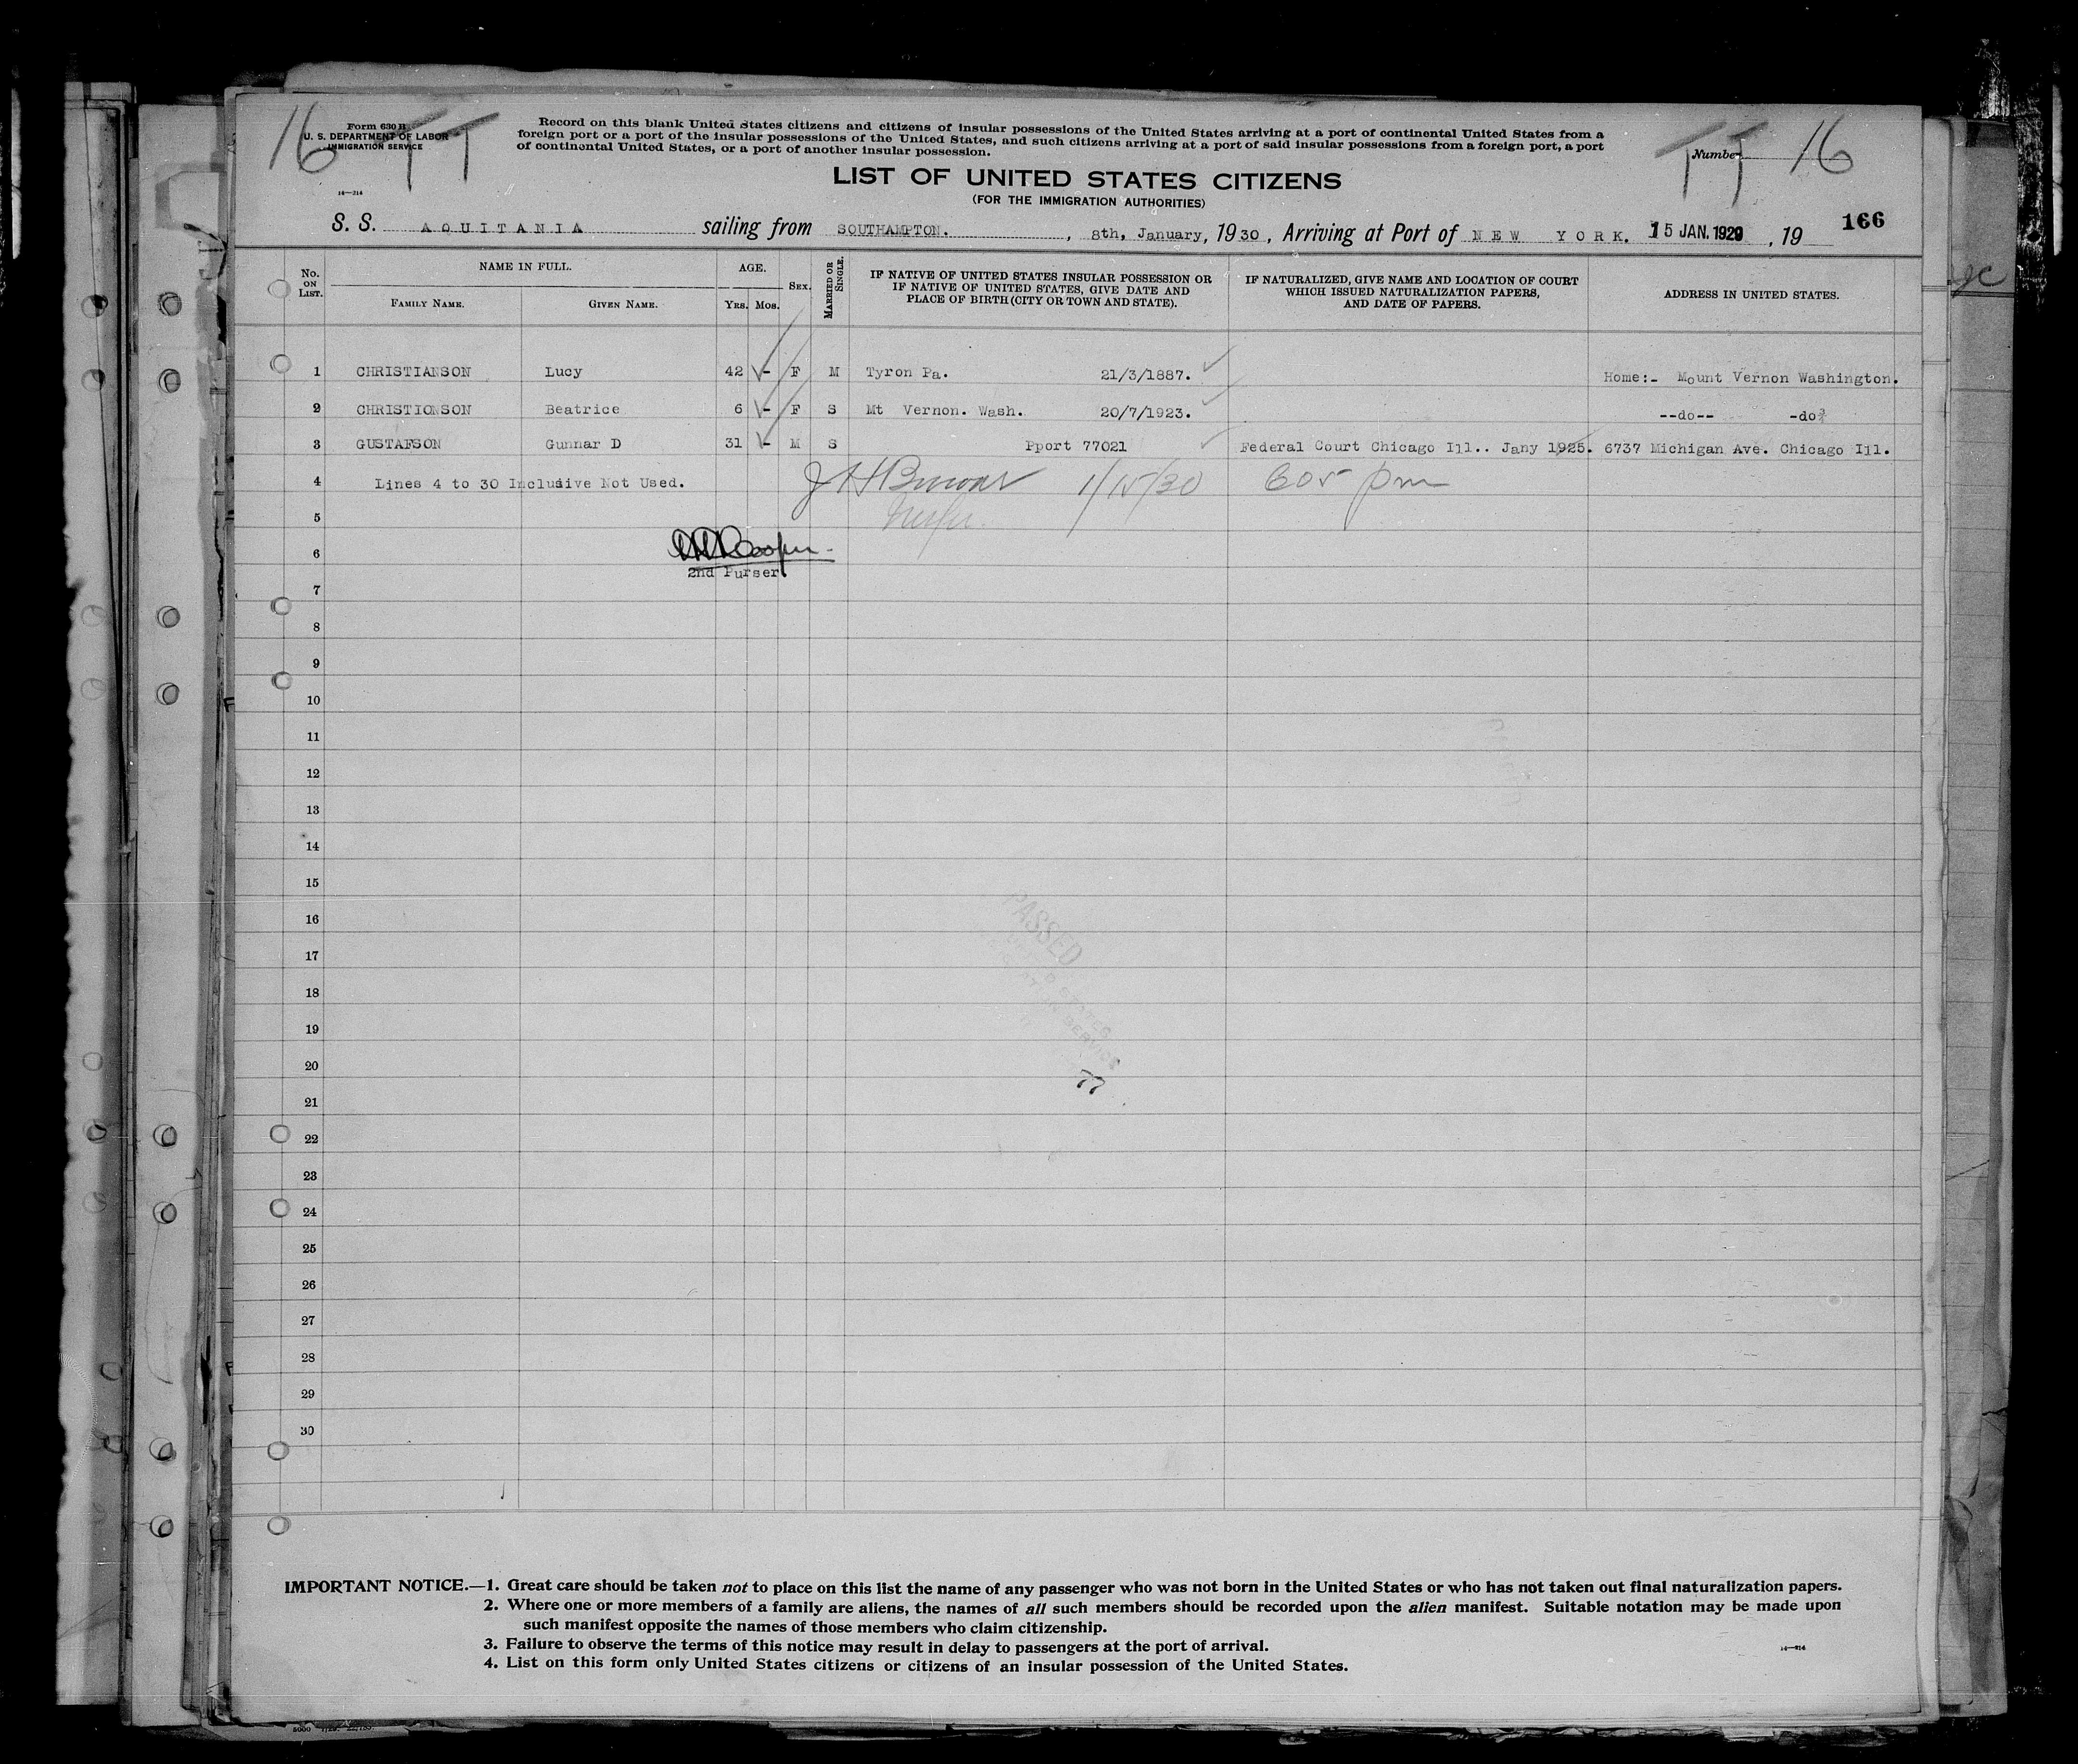 16 TT
Form 630 B
U. S. DEPARTMENT OF LABOR
IMMIGRATION SERVICE
14—214
Record on this blank United States citizens and citizens of insular possessions of the United States arriving at a port of continental United States from a
foreign port or a port of the insular possessions of the United States, and such citizens arriving at a port of said insular possessions from a foreign port, a port
of continental United States, or a port of another insular possession.
Number TT 16
LIST OF UNITED STATES CITIZENS
(FOR THE IMMIGRATION AUTHORITIES)
166
S. S. AQUITANIA sailing from SOUTHAMPTON. , 8th, January, 1930, Arriving at Port of NEW YORK. 15 JAN. 1929 , 19
No. ON LIST.
NAME IN FULL.
FAMILY NAME. GIVEN NAME.
AGE.
YRS. MOS.
SEX.
MARRIED OR SINGLE.
IF NATIVE OF UNITED STATES INSULAR POSSESSION OR
IF NATIVE OF UNITED STATES, GIVE DATE AND
PLACE OF BIRTH (CITY OR TOWN AND STATE).
IF NATURALIZED, GIVE NAME AND LOCATION OF COURT
WHICH ISSUED NATURALIZATION PAPERS,
AND DATE OF PAPERS.
ADDRESS IN UNITED STATES.
1 CHRISTIANSON Lucy 42 - F M Tyron Pa. 21/3/1887. Home:- Mount Vernon Washington.
2 CHRISTIONSON Beatrice 6 - F S Mt Vernon. Wash. 20/7/1923. --do-- -do-
3 GUSTAFSON Gunnar D 31 - M S Pport 77021 Federal Court Chicago Ill.. Jany 1925. 6737 Michigan Ave. Chicago Ill.
4 Lines 4 to 30 Inclusive Not Used. 1/15/30 605 pm
5
6 Cooper
2nd Purser
7
8
9
10
11
12
13
14
15
16
PASSED
17
18
19
20
77
21
22
23
24
25
26
27
28
29
30
IMPORTANT NOTICE.—1. Great care should be taken not to place on this list the name of any passenger who was not born in the United States or who has not taken out final naturalization papers.
2. Where one or more members of a family are aliens, the names of all such members should be recorded upon the alien manifest. Suitable notation may be made upon
such manifest opposite the names of those members who claim citizenship.
3. Failure to observe the terms of this notice may result in delay to passengers at the port of arrival.
4. List on this form only United States citizens or citizens of an insular possession of the United States.
14—214